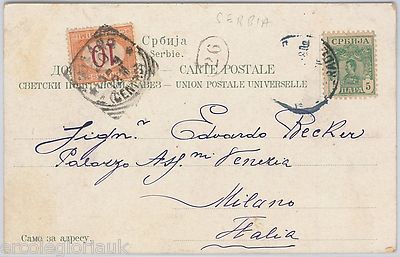 SERBIA
Србија
Serbie.
26
10
СРБИЈА
5
ПАРА
CARTE POSTALE
СВЕТСКИ
UNION POSTALE UNIVERSELLE
Signor Edoardo Becker
Palazzo Ass.ni Venezia
Milano
Italia
Само за адресу.
arcolegloriauk